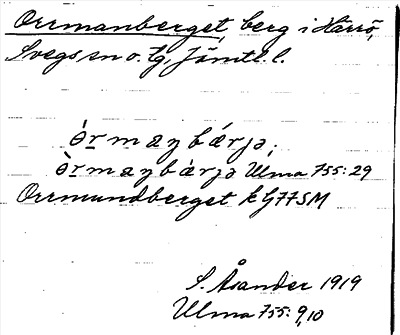 Orrmanberget, berg i Härrö,
Svegs sn o. tg, Jämtl. l.
òrmaŋbárjə,
òrmaŋbàrjə Ulma 755:29
Orrmundberget k G77SM
S. Åsander 1919
Ulma 755: 9,10